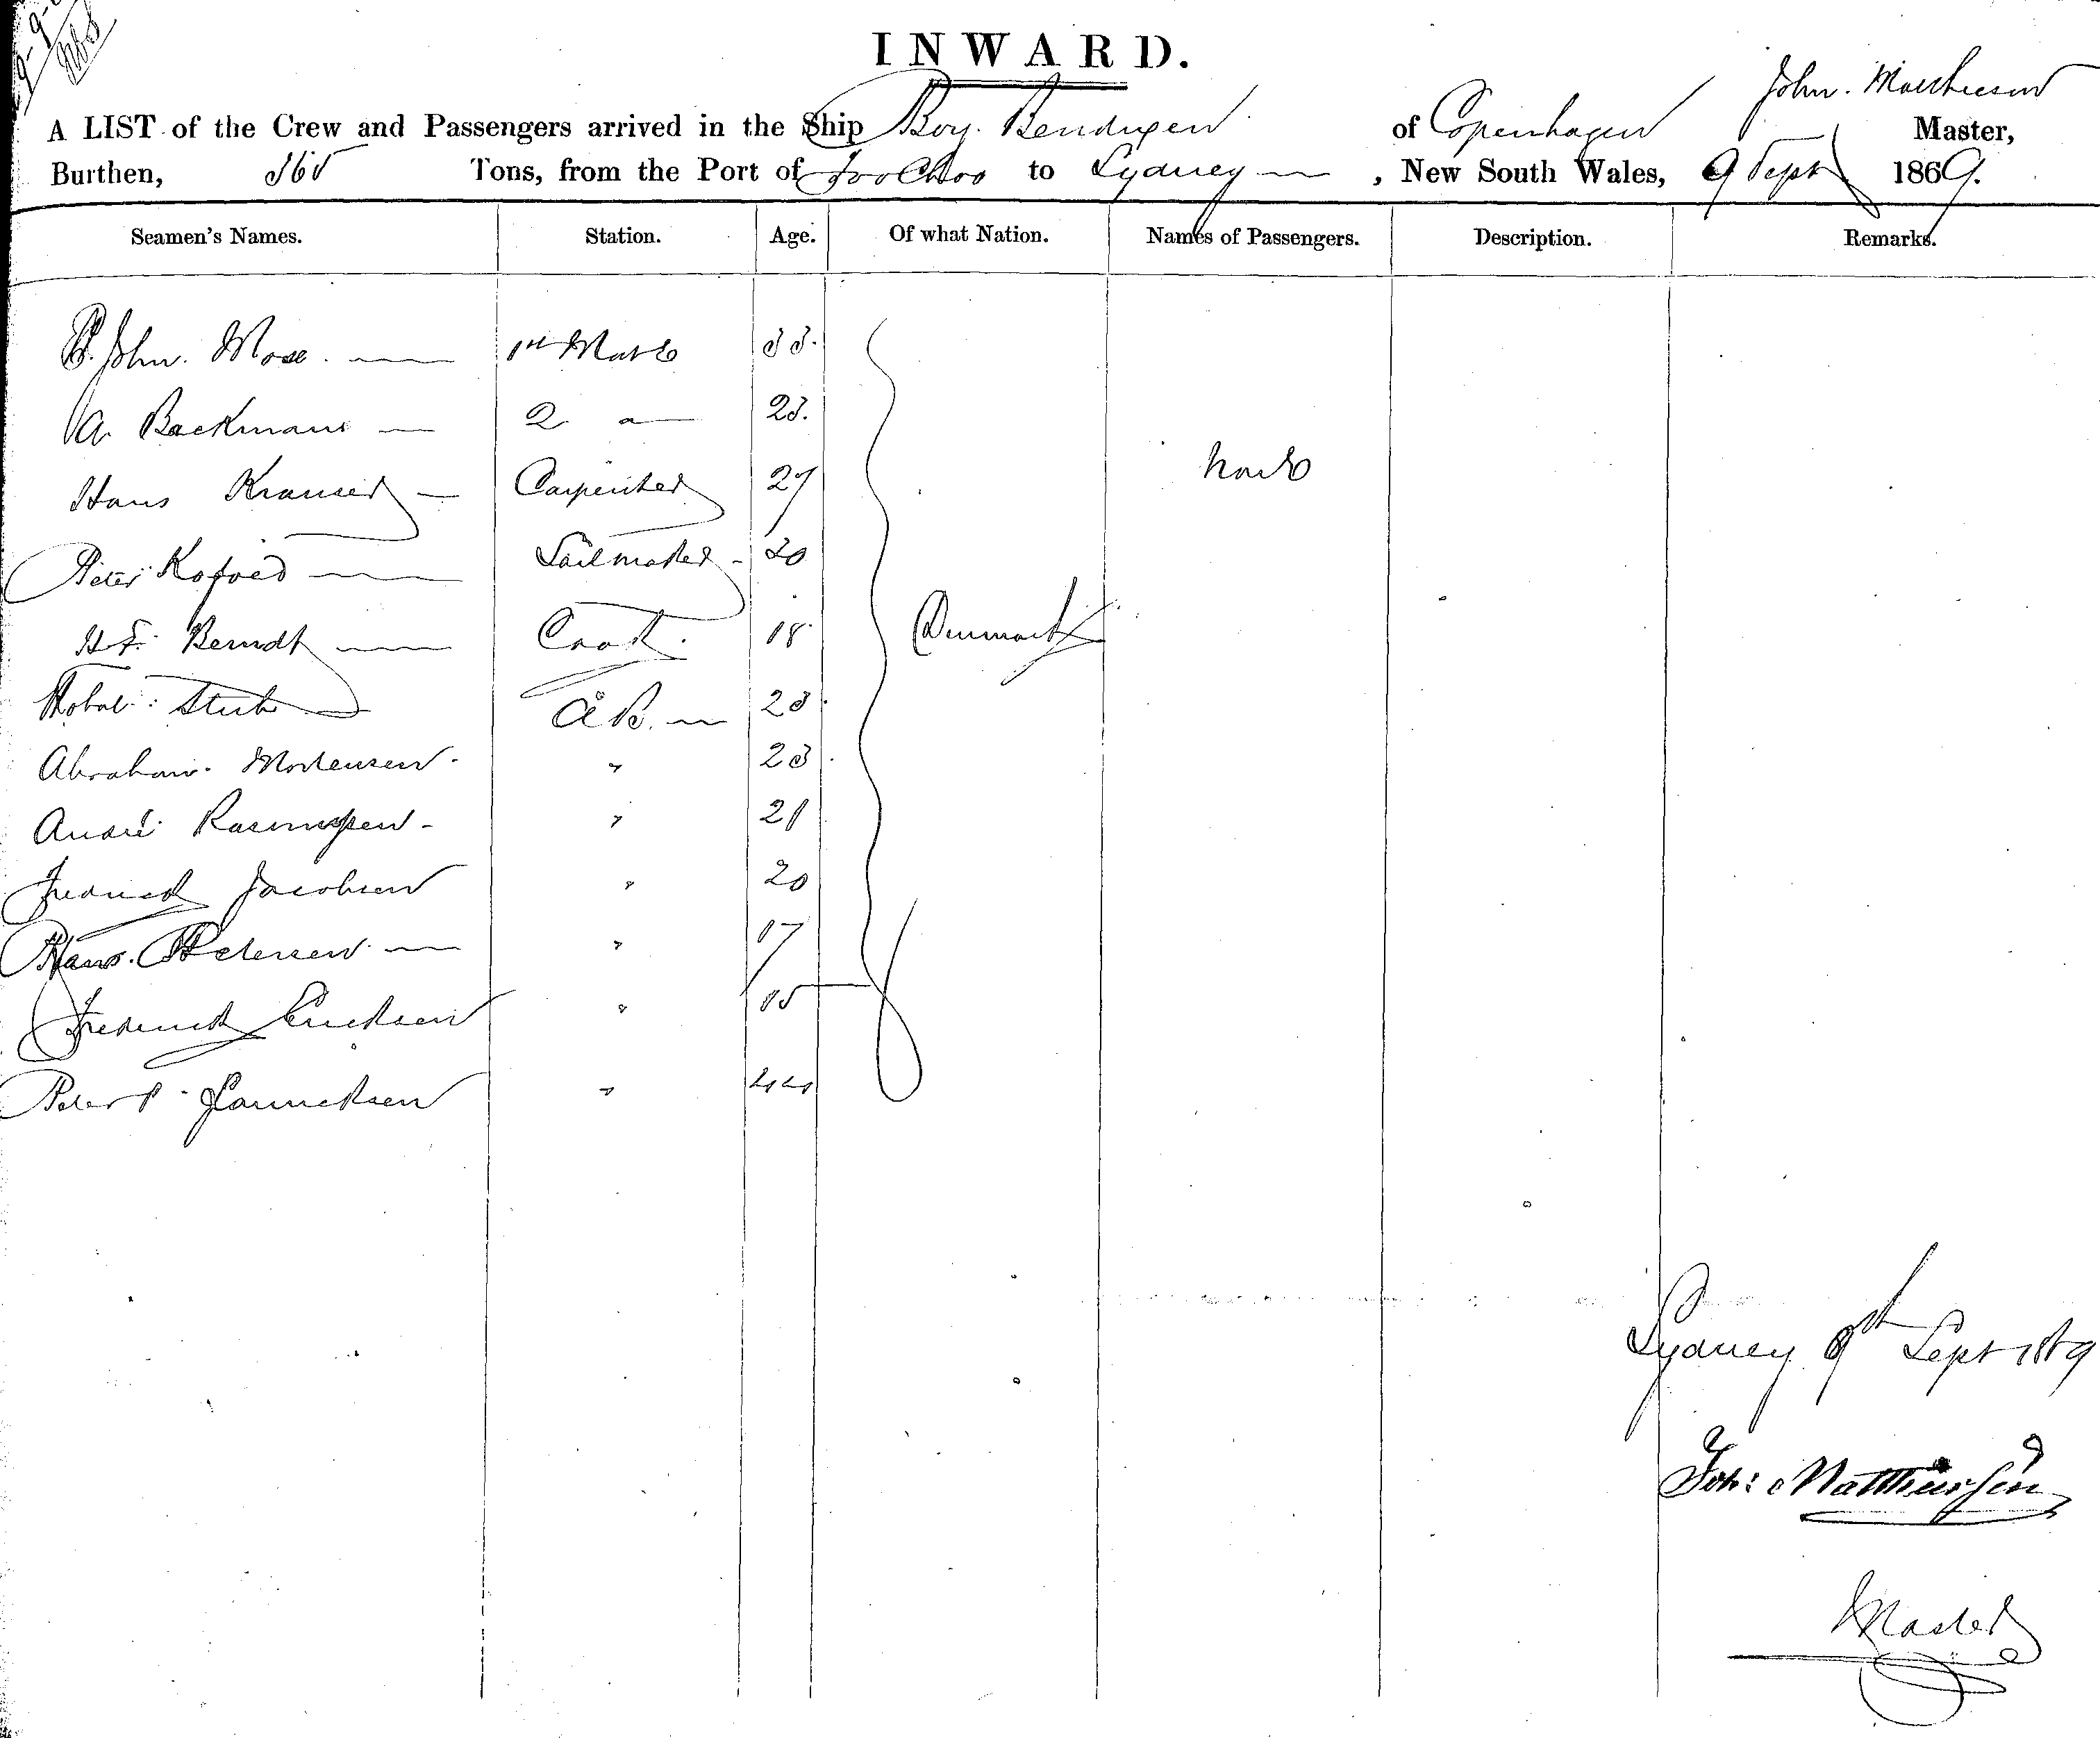 INWARD.
John. Mathiesen
A LIST of the Crew and Passengers arrived in the Ship Boy. Bendixen of Copenhagen Master,
Burthen, 365 Tons, from the Port of Foo Choo to Sydney , New South Wales, 9 Sept 1869.
Seamen's Names. Station. Age. Of what Nation. Names of Passengers. Description. Remarks.
P. John. Mose. 1st Mate 33.
A. Backmann 2 23.
Hans Kramer Carpenter 27 None
Peter Kofoed Sailmaker 20
H. F. Berndt Cook. 18 Denmark
AB. 23
Abraham. Mortensen. " 23
André Rasmussen " 21
Fredrick Jacobsen " 20
Hans. Petersen " 17
Frederick Ericksen " 15
Peter P. " 44
Sydney 9th Sept 1869
Joh: Matthiessen
Master